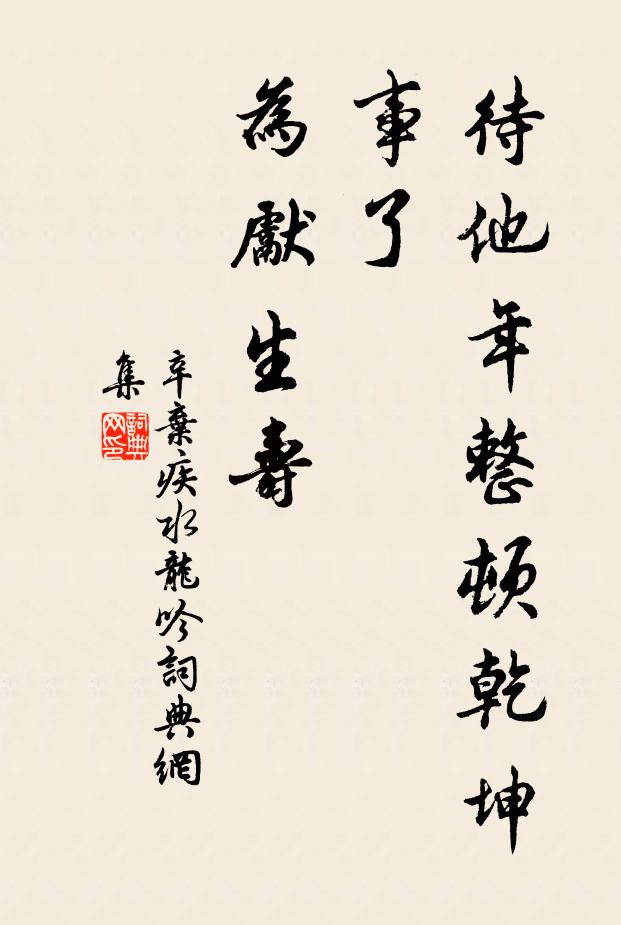 待他年整頓乾坤
事了
為獻生壽
辛棄疾水龍吟詞典網
集
詞典
网印